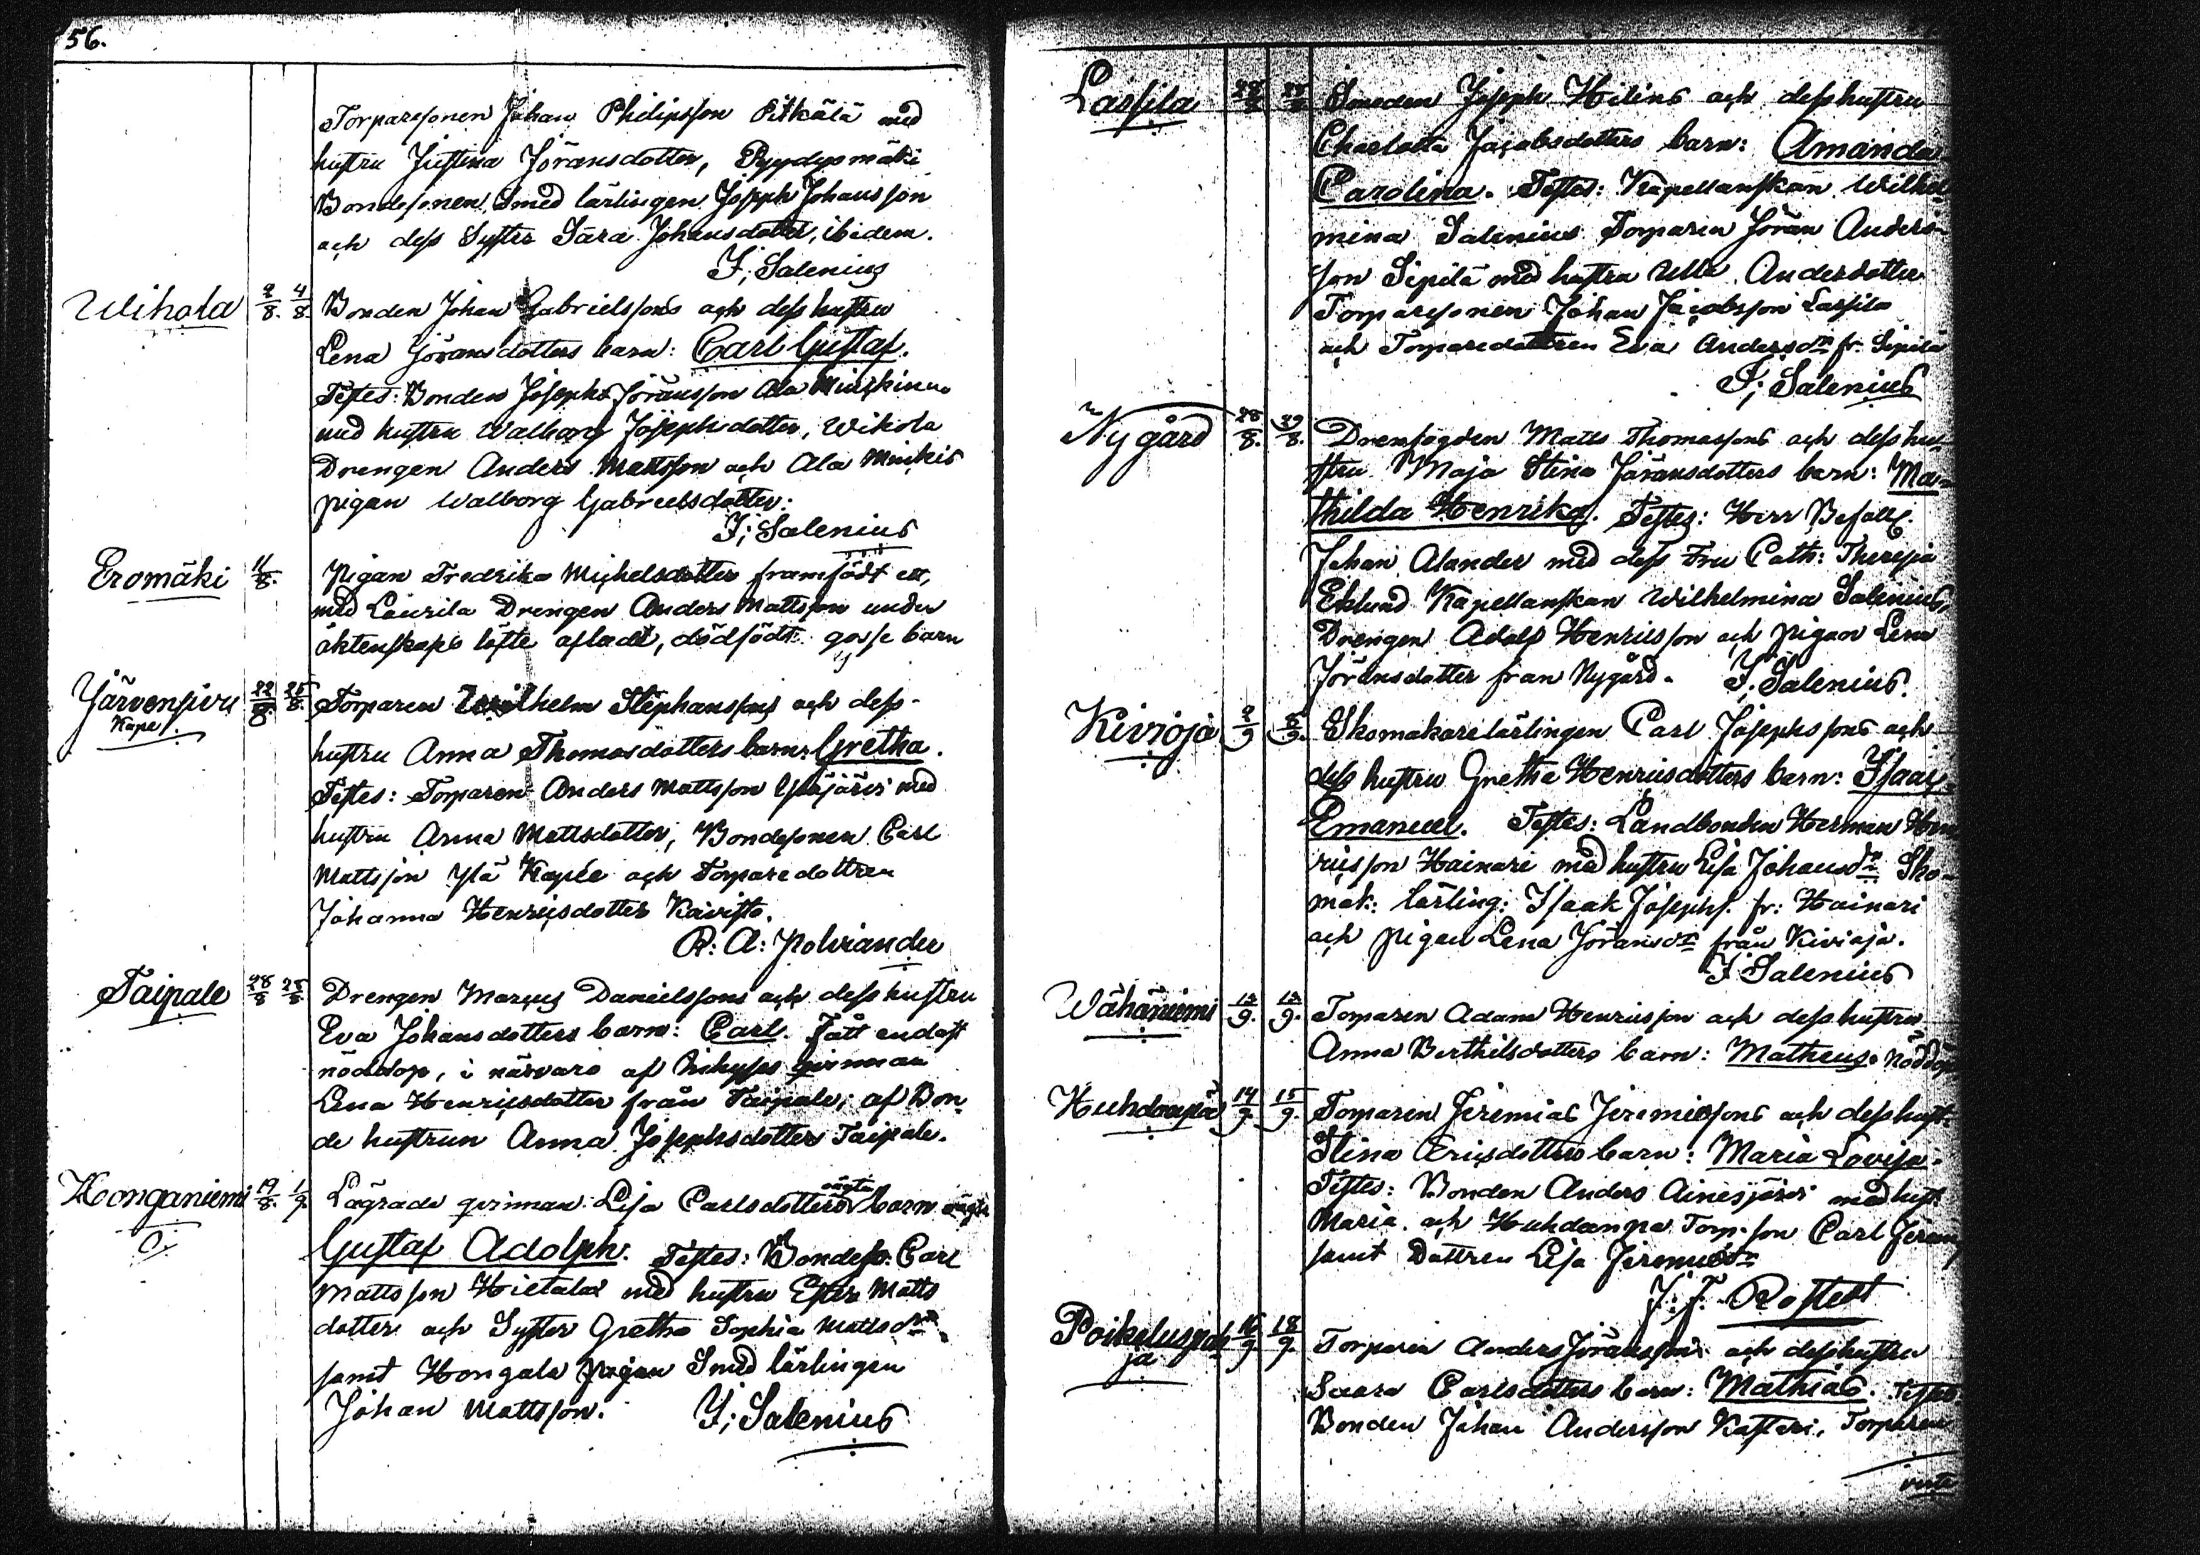 56.
Torparesonen Johan Philipsson Pitkälä med
hustru Justina Jöransdotter, Ryydysmäki
Bondesonen Smed lärlingen Joseph Johansson
och dess Syster Sara Johansdotter, ibidem.
I; Salenius
Wihola 2/8. 4/8. Bonden Johan Gabrielssons och dess hustru
Lena Jöransdotters barn: Carl Gustaf.
Testes: Bonden Josephs Jöransson Ala
med hustru Walborg Josephsdotter, Wikola
Drengen Anders Mattsson och Ala
pigan Walborg Gabrielsdotter:
I; Salenius
Eromäki 11/8. Pigan Fredrika Michelsdotter framfödt ett,
med Laurila Drengen Anders Mattsson under
äktenskaps löfte afladt, dödfödt gosse barn
Järvensivu 22/8. 25/8. Torparen Wilhelm Stephanssons och dess
Kape.
hustru Anna Thomasdotters barn: Gretha.
Testes: Torparen Anders Mattsson med
hustru Anna Mattsdotter, Bondesonen Carl
Mattsson Ylä Kapee och Torparedottren
Johanna Henricsdotter Kävistö.
R: A: Polviander
Taipale 28/8 28/8. Drengen Marcus Danielssons och dess hustru
Eva Johansdotters barn: Carl. Fått endast
nöddop, i närvaro af qvinnan
Lena Henricsdotter från Taipale; af Bon-
de hustrun Anna Josephsdotter Taipale.
Honganiemi 19/8. 1/9. Lägrade qvinnan Lisa Carlsdotters oägta barn
Gustaf Adolph. Testes: Bondes: Carl
Mattsson Hietala med hustru Ester Matts
dotter och Syster Gretha Sophia Mattsdr
samt Hongala pigan Smed lärlingen
Johan Mattsson. I; Salenius
Lassila 28/8 28/8 Smeden Joseph Helins och dess hustru
Charlotta Jacobsdotters barn: Amanda
Carolina. Testes: Kapellanskan Wilhel
mina Salenius Torparen Jöran Anders-
son Sipilä med hustru Ulla Andersdotter
Torparesonen Johan Jacobsson Lassila
och Torparedottren Eva Andersdr fr. Sipilä
I; Salenius
Nygård 28/8. 29/8. Drensfogden Matts Thomassons och dess hu-
stru Maja Stina Jöransdotters barn: Ma-
thilda Henrika. Testes: Herr Befallj.
Johan Alander med dess Fru Cath: Theresia
Eklund Kapellanskan Wilhelmina Salenius,
Drengen Adolf Henricsson och pigan Lena
Jöransdotter från Nygård. I. Salenius.
Kivioja 2/9 5/9. Skomakarelärlingen Carl Josephssons och
dess hustru Gretha Henricsdotters barn: Isaac
Emanuel. Testes: Landbonden Herman Hen
ricsson Hainari med hustru Lisa Johansdr Sko-
mak: lärling: Isaak Josephs. fr: Hainari
och pigan Lena Jöransdr från Kivioja.
I Salenius
Wähäniemi 12/9. 12/9. Torparen Adam Henricsson och dess hustru
Anna Berthilsdotters barn: Matheus. Nöddöpt
Huhdanpä 14/9. 15/9. Torparen Jeremias Jeremiessons och dess hust:
Stina Ericsdotters barn: Maria Lovisa.
Testes: Bonden Anders Ainesjärvi med hust:
Maria. och Huhdanpä Torp. son Carl Jeremi
samt Dottren Lisa Jeremiedr
J. F. Rostedt
Poikelusoja 16/9 18/9. Torparen Anders Jöranssons och dess hustru
Saara Carlsdotters barn: Mathias. Testes.
Bonden Johan Andersson Kastari, Torparen
verte